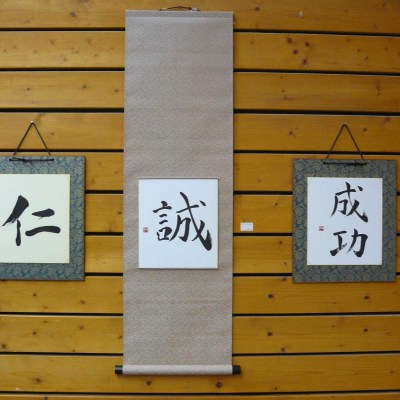 仁
誠
成
功